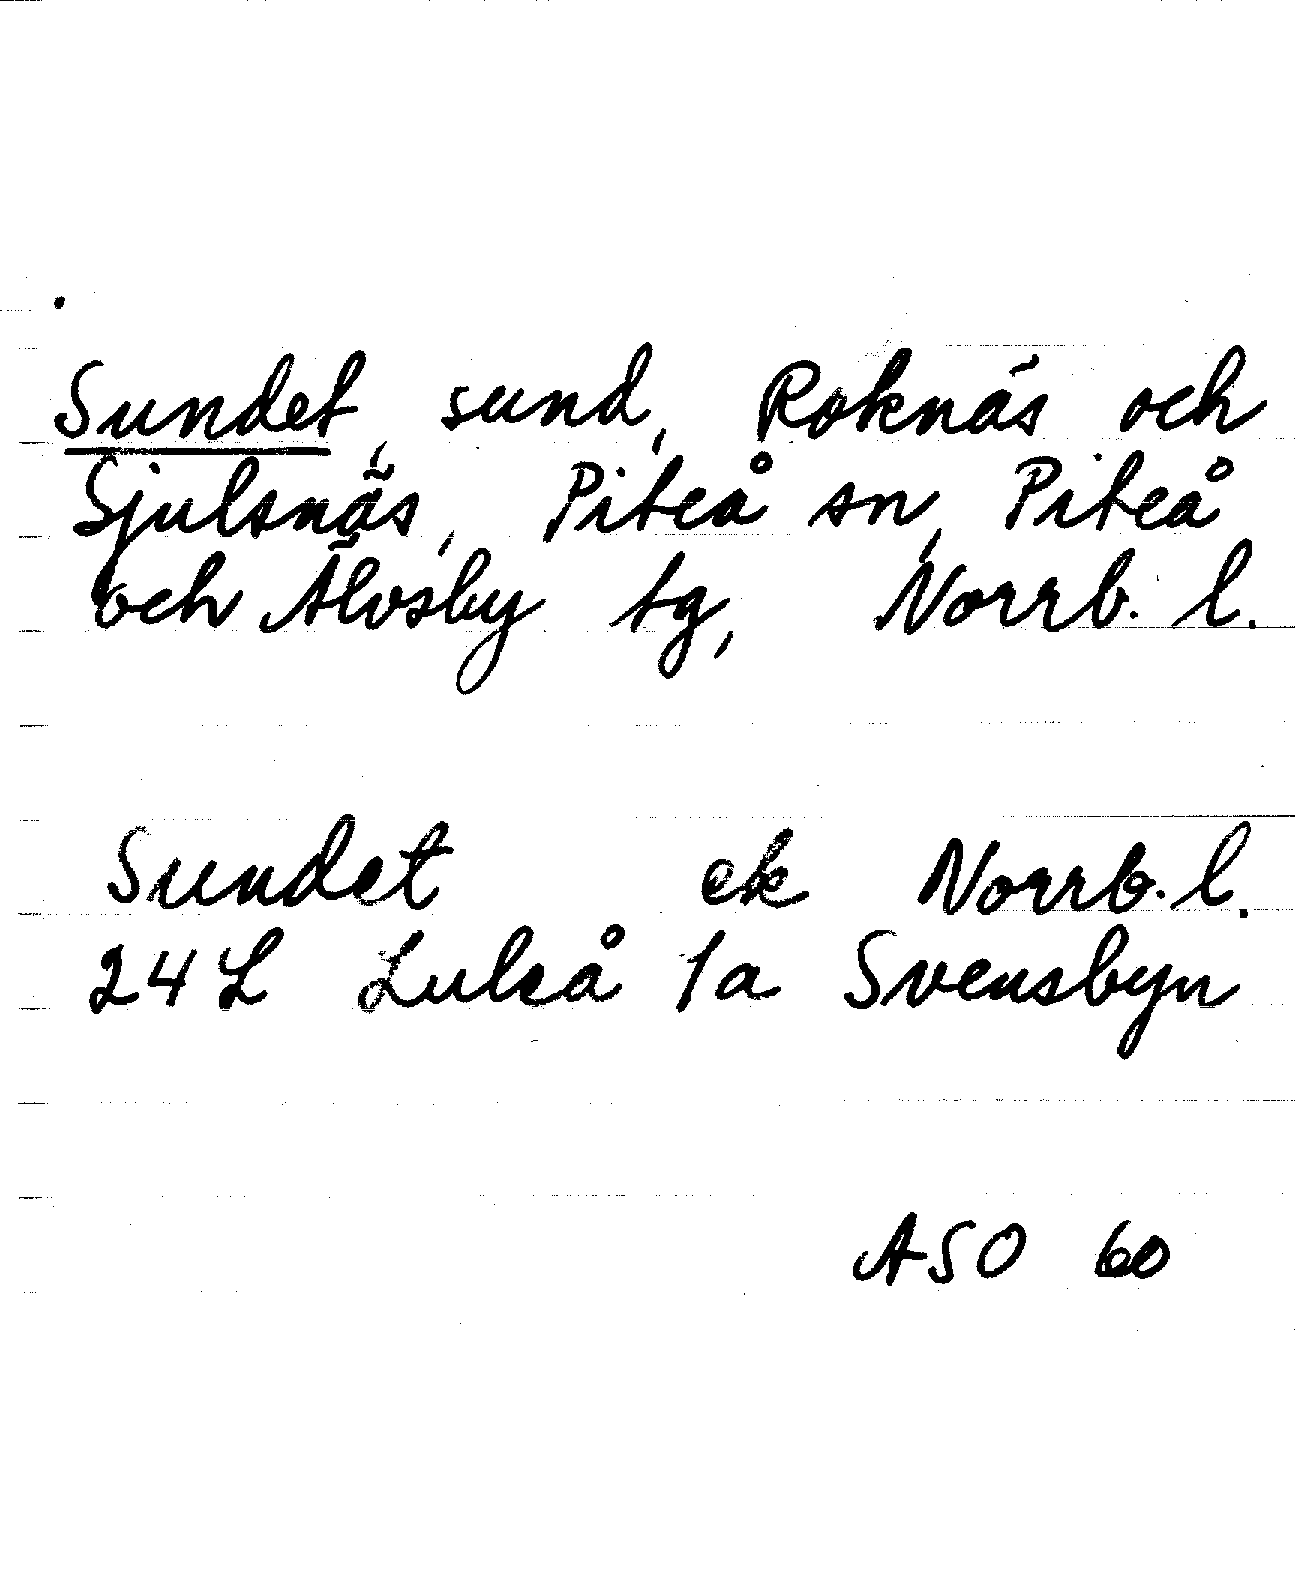 Sundet, sund, Roknäs och
Sjulsnäs, Piteå sn, Piteå
och Älvsby tg, Norrb. l.
Sundet ek Norrb. l.
24 L Luleå 1a Svensbyn
ASO 60